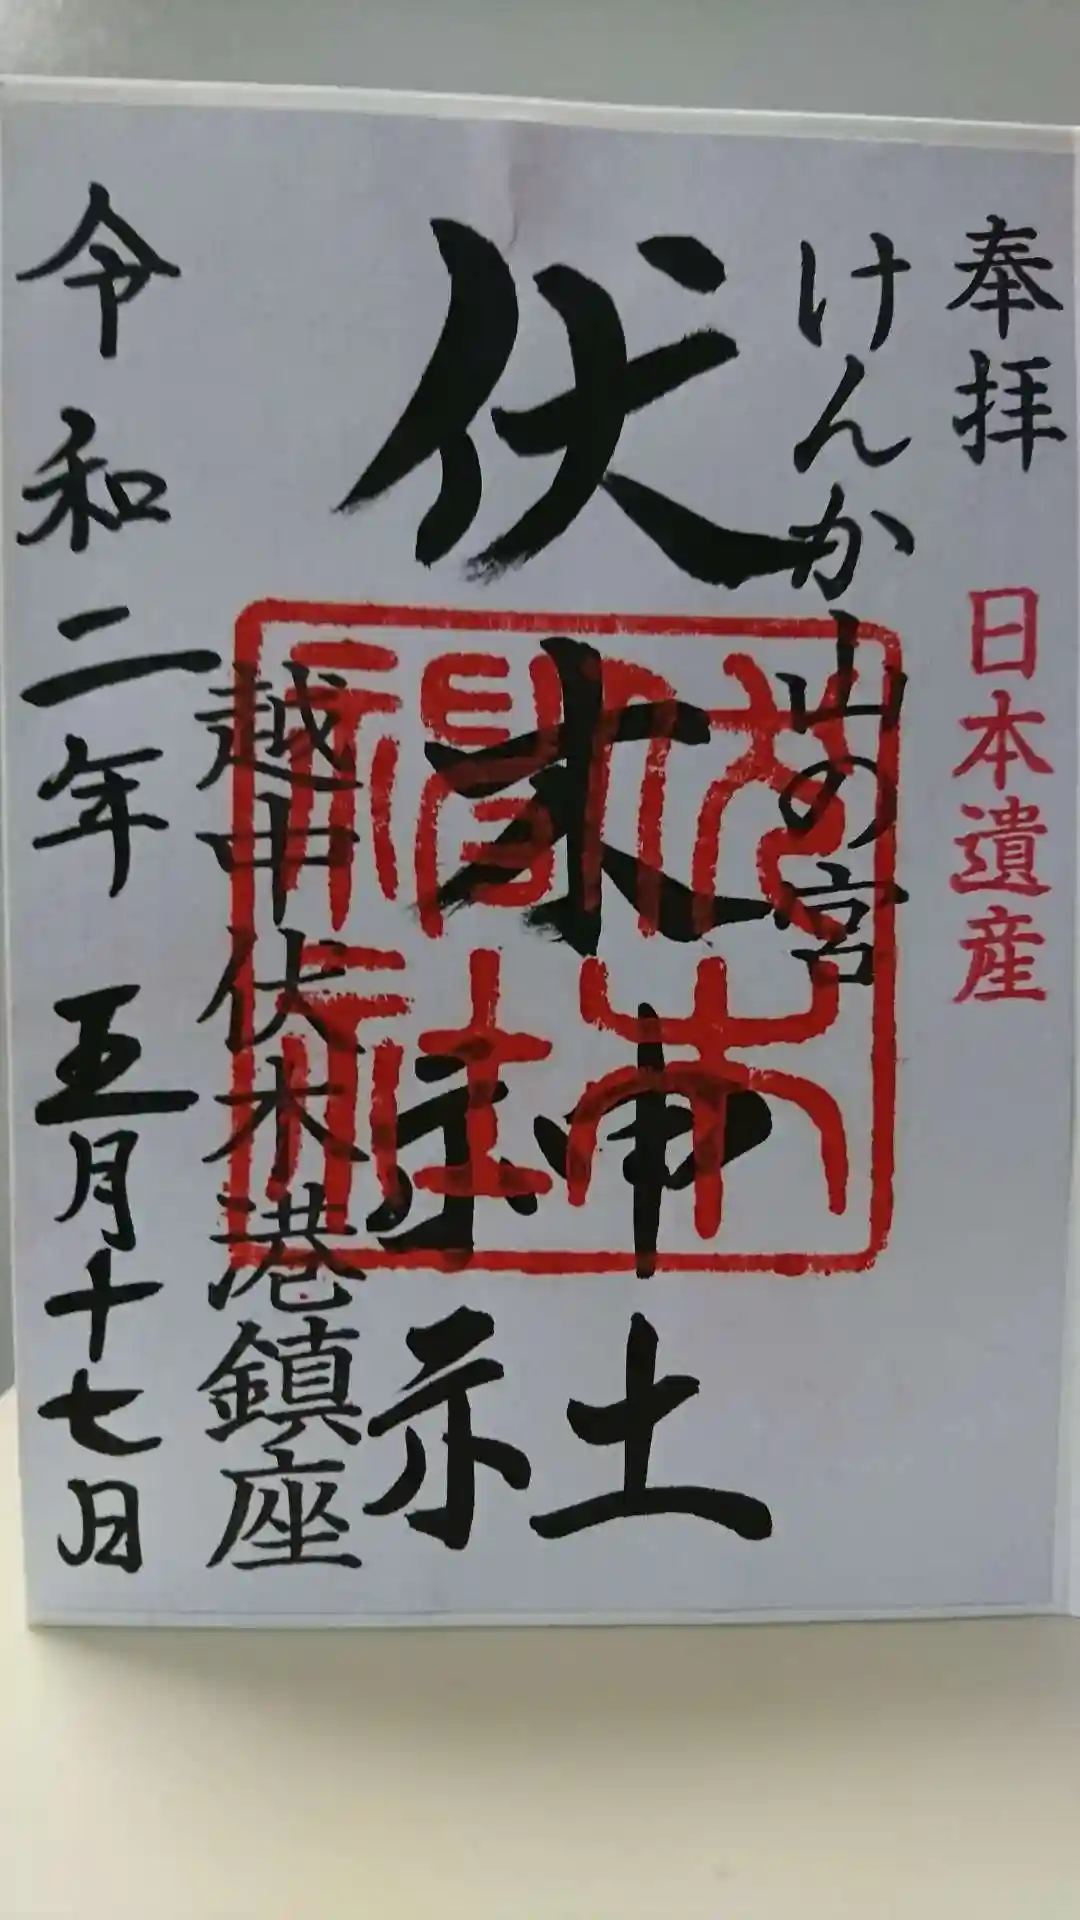 奉拝
日本遺産
けんか山の宮
伏木神社
伏木神社
越中伏木港鎮座
令和二年 五月十七日